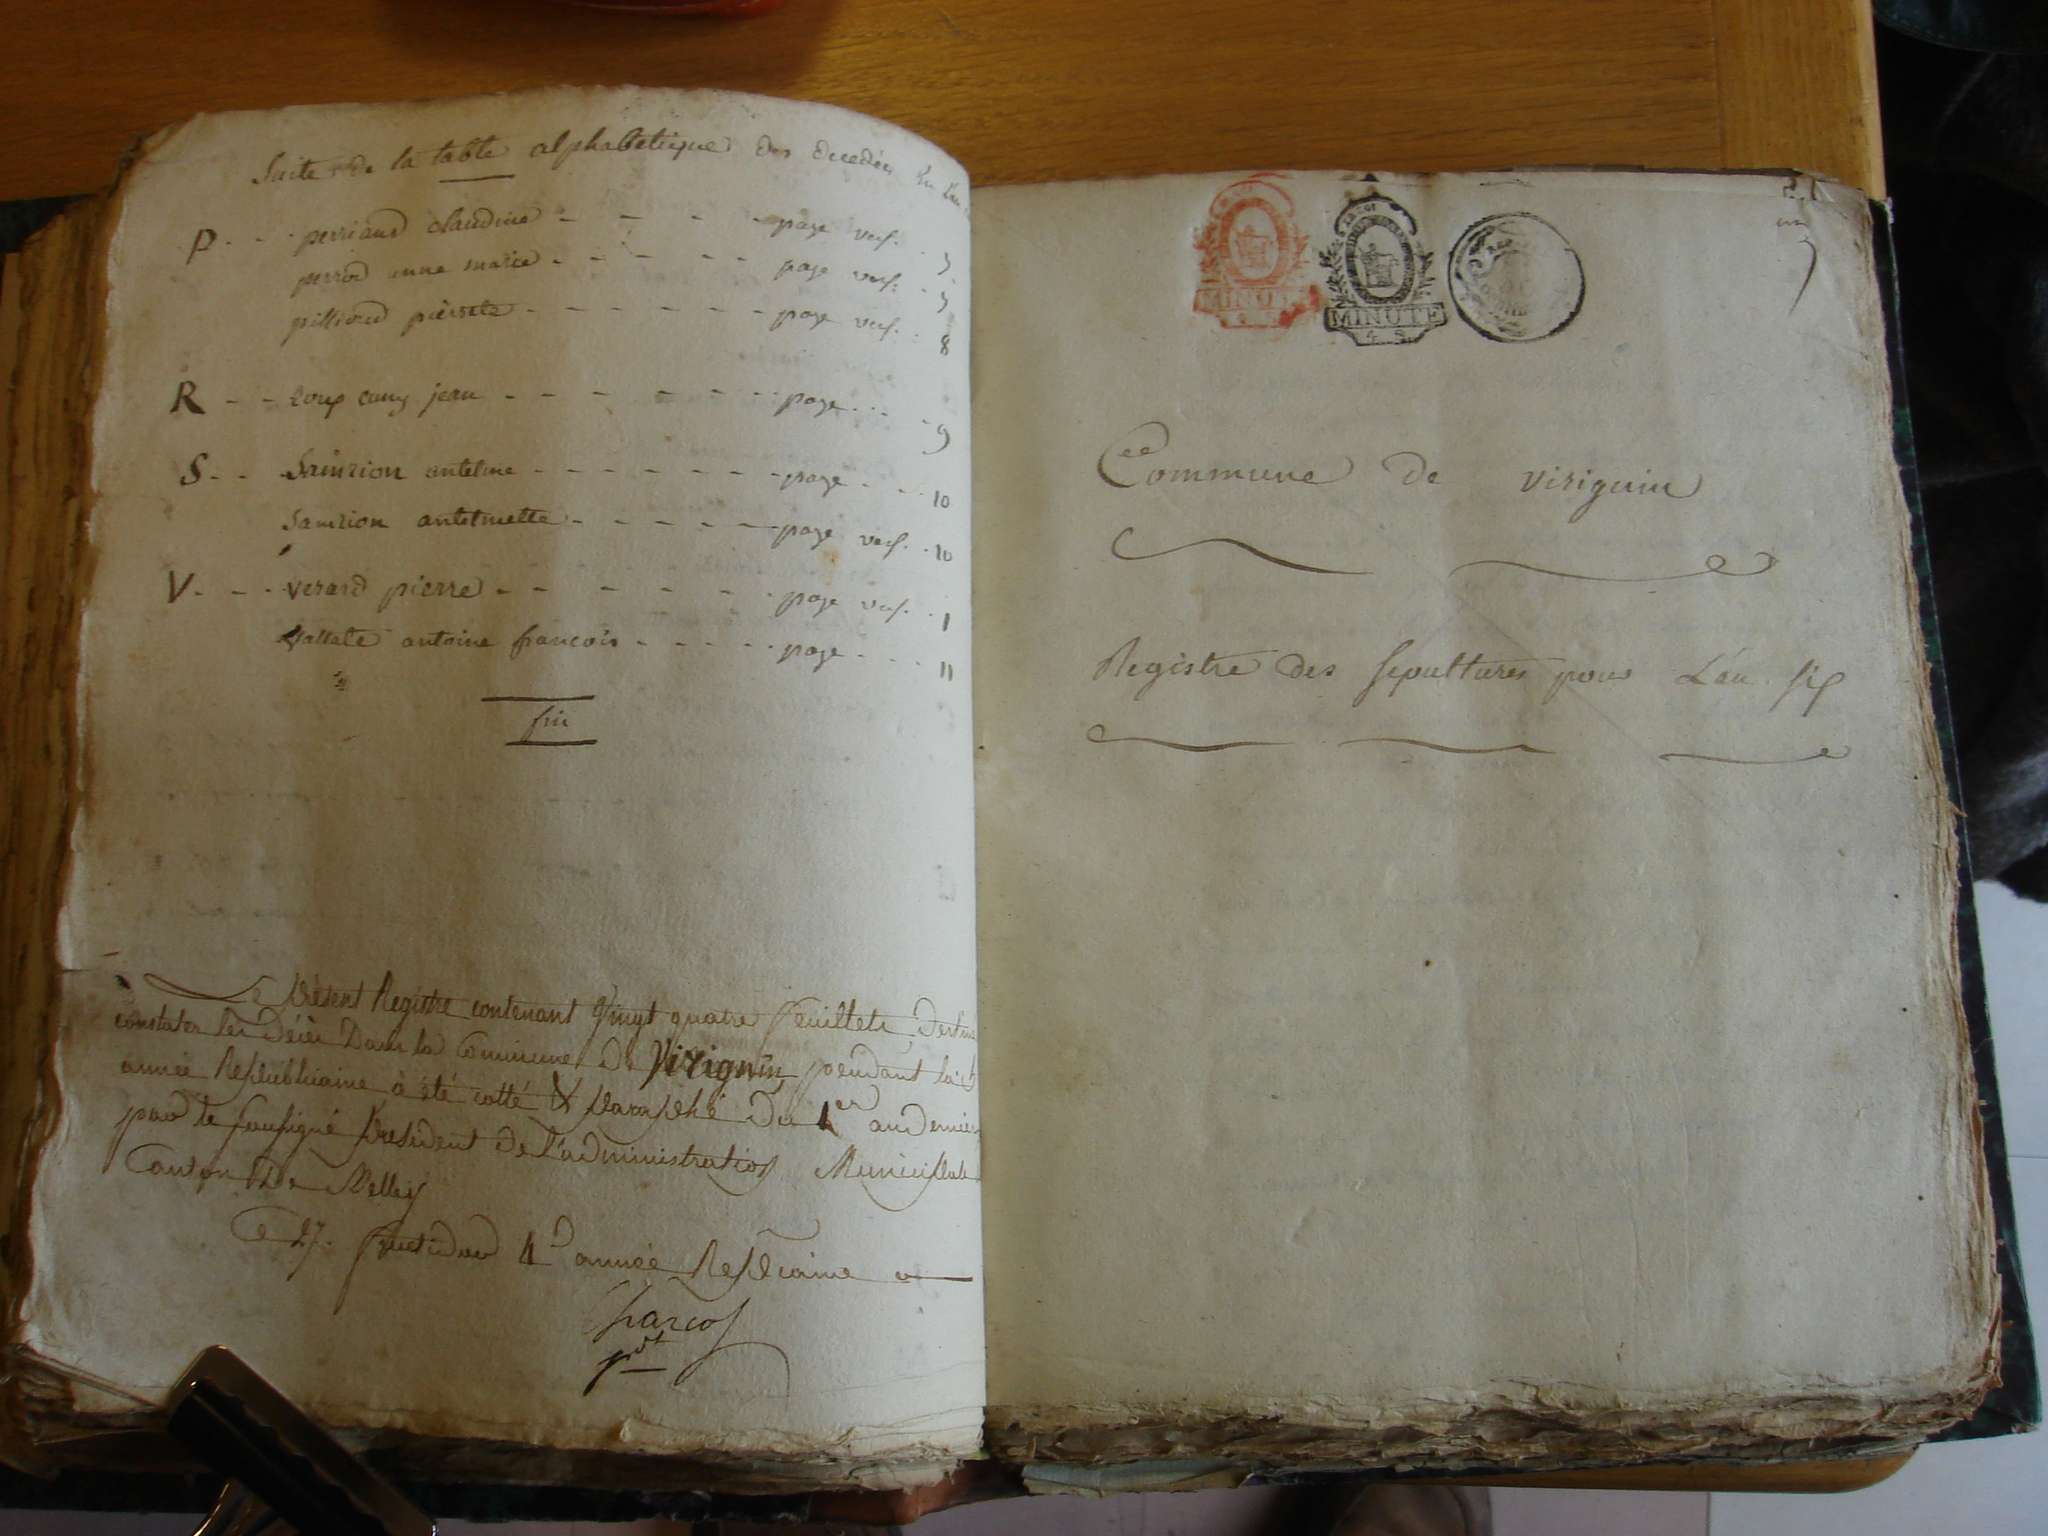 Suite de la table alphabetique des decedés en l'an
P - - - perriand claudine - - - - page vers. 3
perrod anne marie - - - - - page vers. 5
pilliond pierrete - - - - - - page vers. 8
R - - - Loup cury jean - - - - - - page - - - 9
S - - Samrion antelme - - - - - - - page - - - 10
Samrion antelmette - - - - - page vers. 10
V - - - verard pierre - - - - - page vers. 1
Vallate antoine francois - - - - - page - - - 11
fin
Le présent Registre contenant Vingt quatre feuillets, destiné
constater les Décès Dans la Commune De Virignin, pendant la 5
année Republicaine à été cotté & paraphé Du 1er au Dernier
par le soussigné president De l'administration Municipale
Canton De Belley
Ce 27. fructidor 4e année Repécaine
Charcot
pdt
MINUTE
4 S
MINUTE
4 S
Commune de virignin
Registre des sepultures pour L'an six